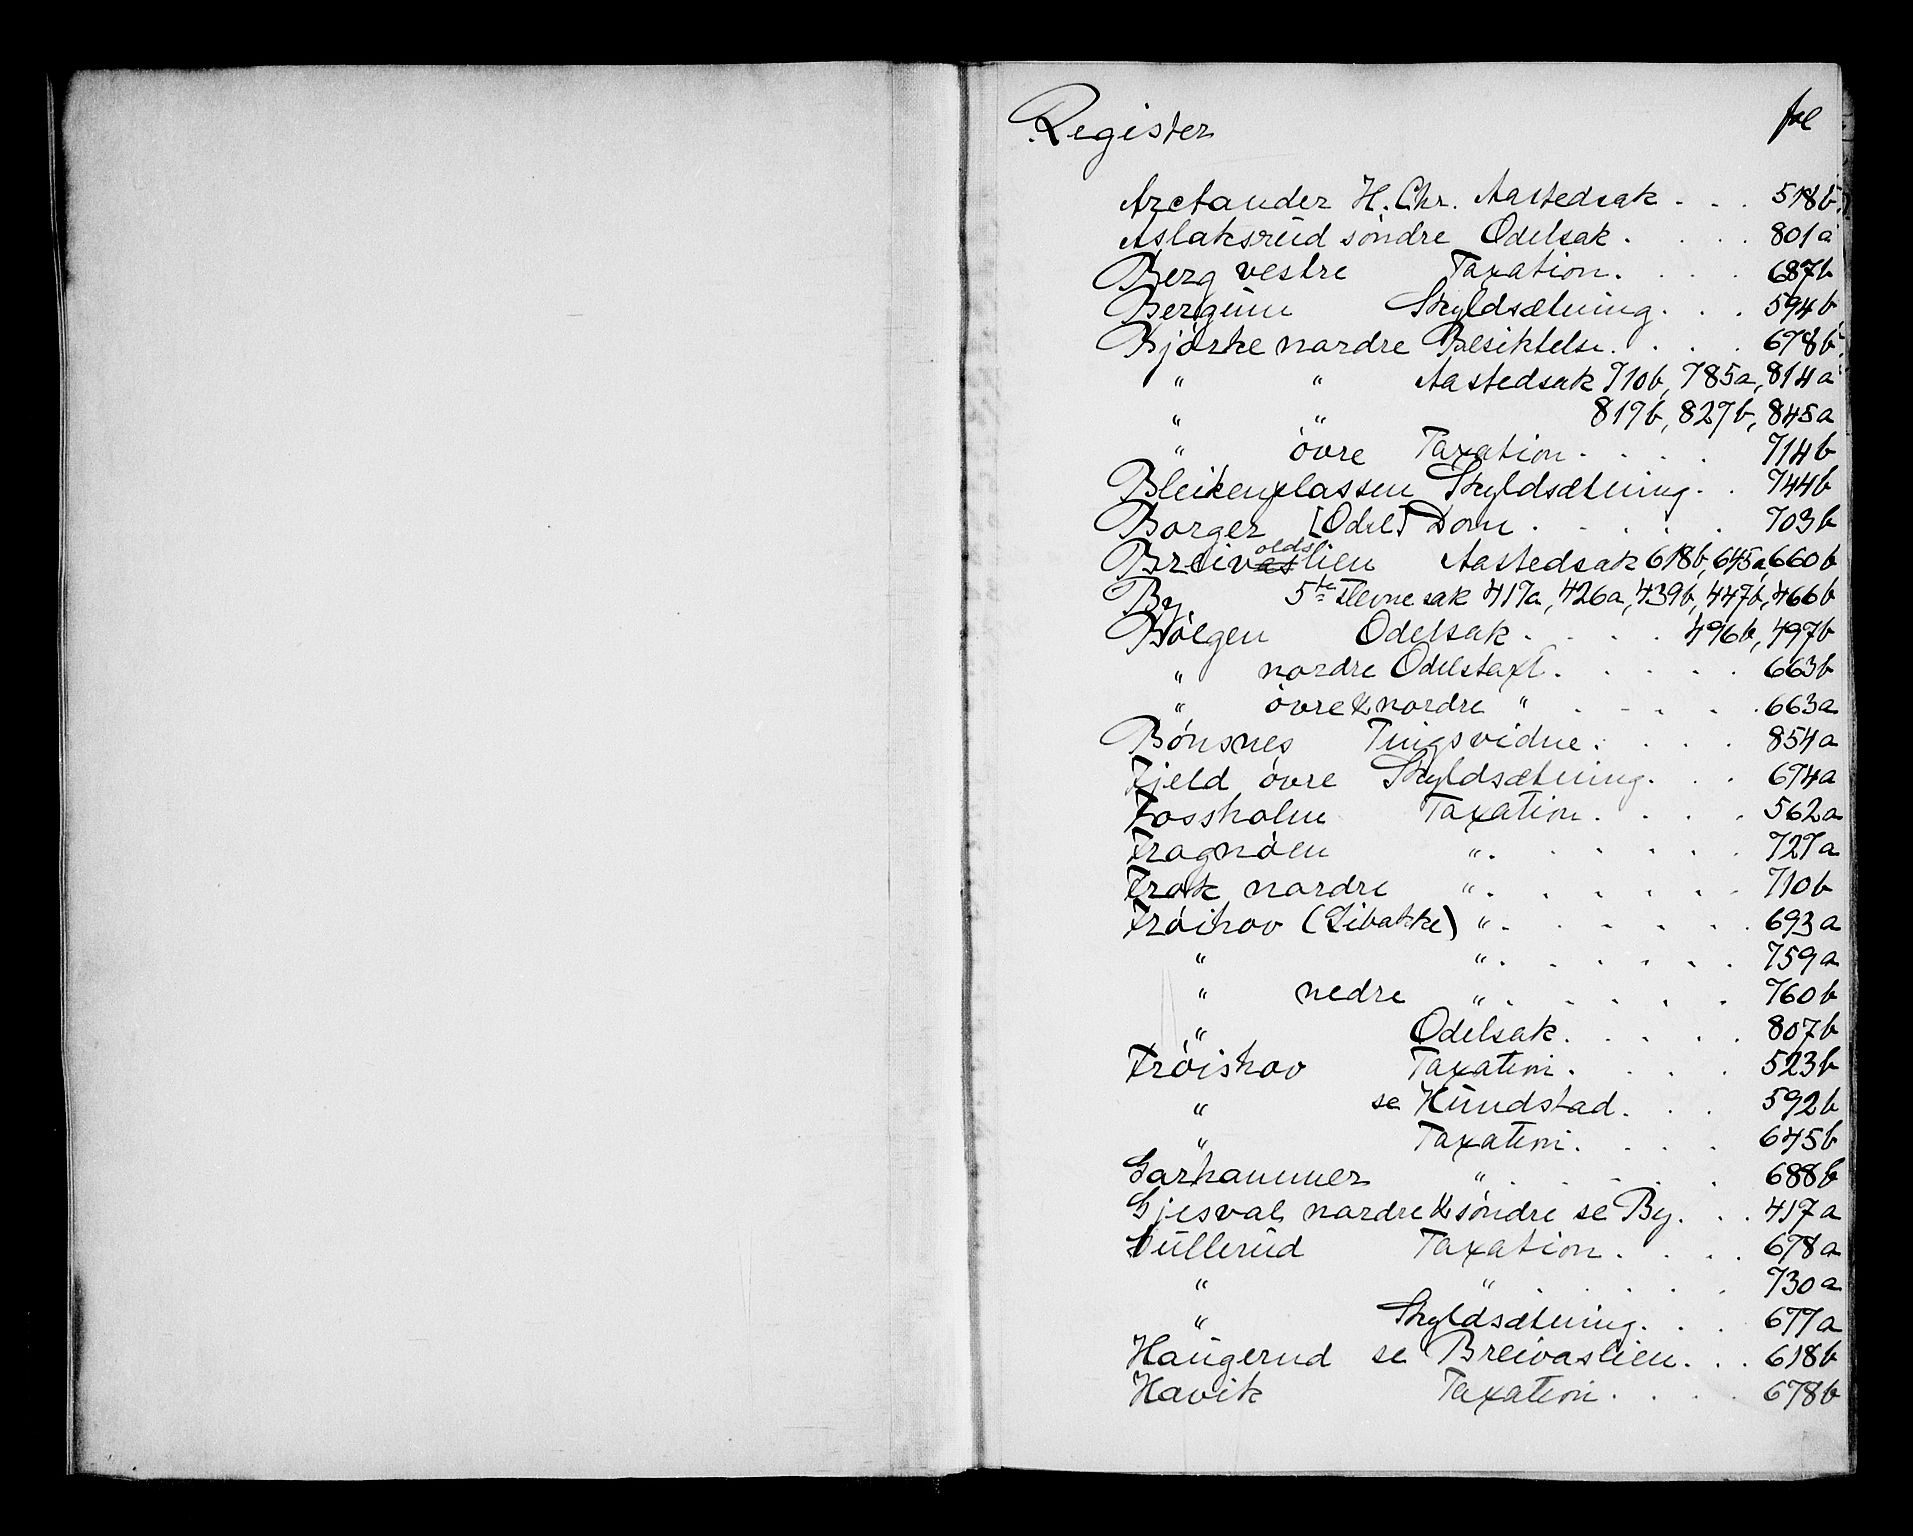 Register fol
Arctander H. Chr. Aastedsak . . . 518b
Aslaksrud söndre Odelsak . . . . 801a
Berg vestre Taxation . . . . 687b
Bergum Skyldsætning . . . 594b
Bjørke nordre Besiktelse . . . . 678b
" " Aastedsak 710b, 785a, 814a
" " 819b, 827b, 845a
" övre Taxation . . . . 714b
Bleikenplassen Skyldsætning . . 744b
Borger [Odel] Dom . . . . . 703b
olds
Breivaslien Aastedsak 618b, 645a, 660b
By. 5te stevnesak 417a, 426a, 439b, 447b, 466b
Bölgen Odelsak . . . . 496b, 497b
" nordre Odelstaxt . . . . . 663b
" övre & nordre " . . . . . 663a
Bönsnes Tingsvidne . . . . 854a
Fjeld övre Skyldsætning . . . 674a
Fossholm Taxation . . . . 562a
Frognöen " . . . . . . 727a
Frok nordre " . . . . . . 710b
Fröihov (Libakke) " . . . . . . 693a
" " . . . . . . 759a
" nedre " . . . . . . 760b
" Odelsak . . . . . 807b
Fröishov Taxation . . . . 523b
" se Kundstad . . . 592b
" Taxation . . . . 645b
Garhammer " . . . . . 688b
Gjesval nordre & söndre se By . . . 417a
Gullerud Taxation . . . . 678a
" " . . . . . . 730a
" Skyldsætning . . . 677a
Haugerud se Breivaslien . . . 618b
Havik Taxation . . . . 678b